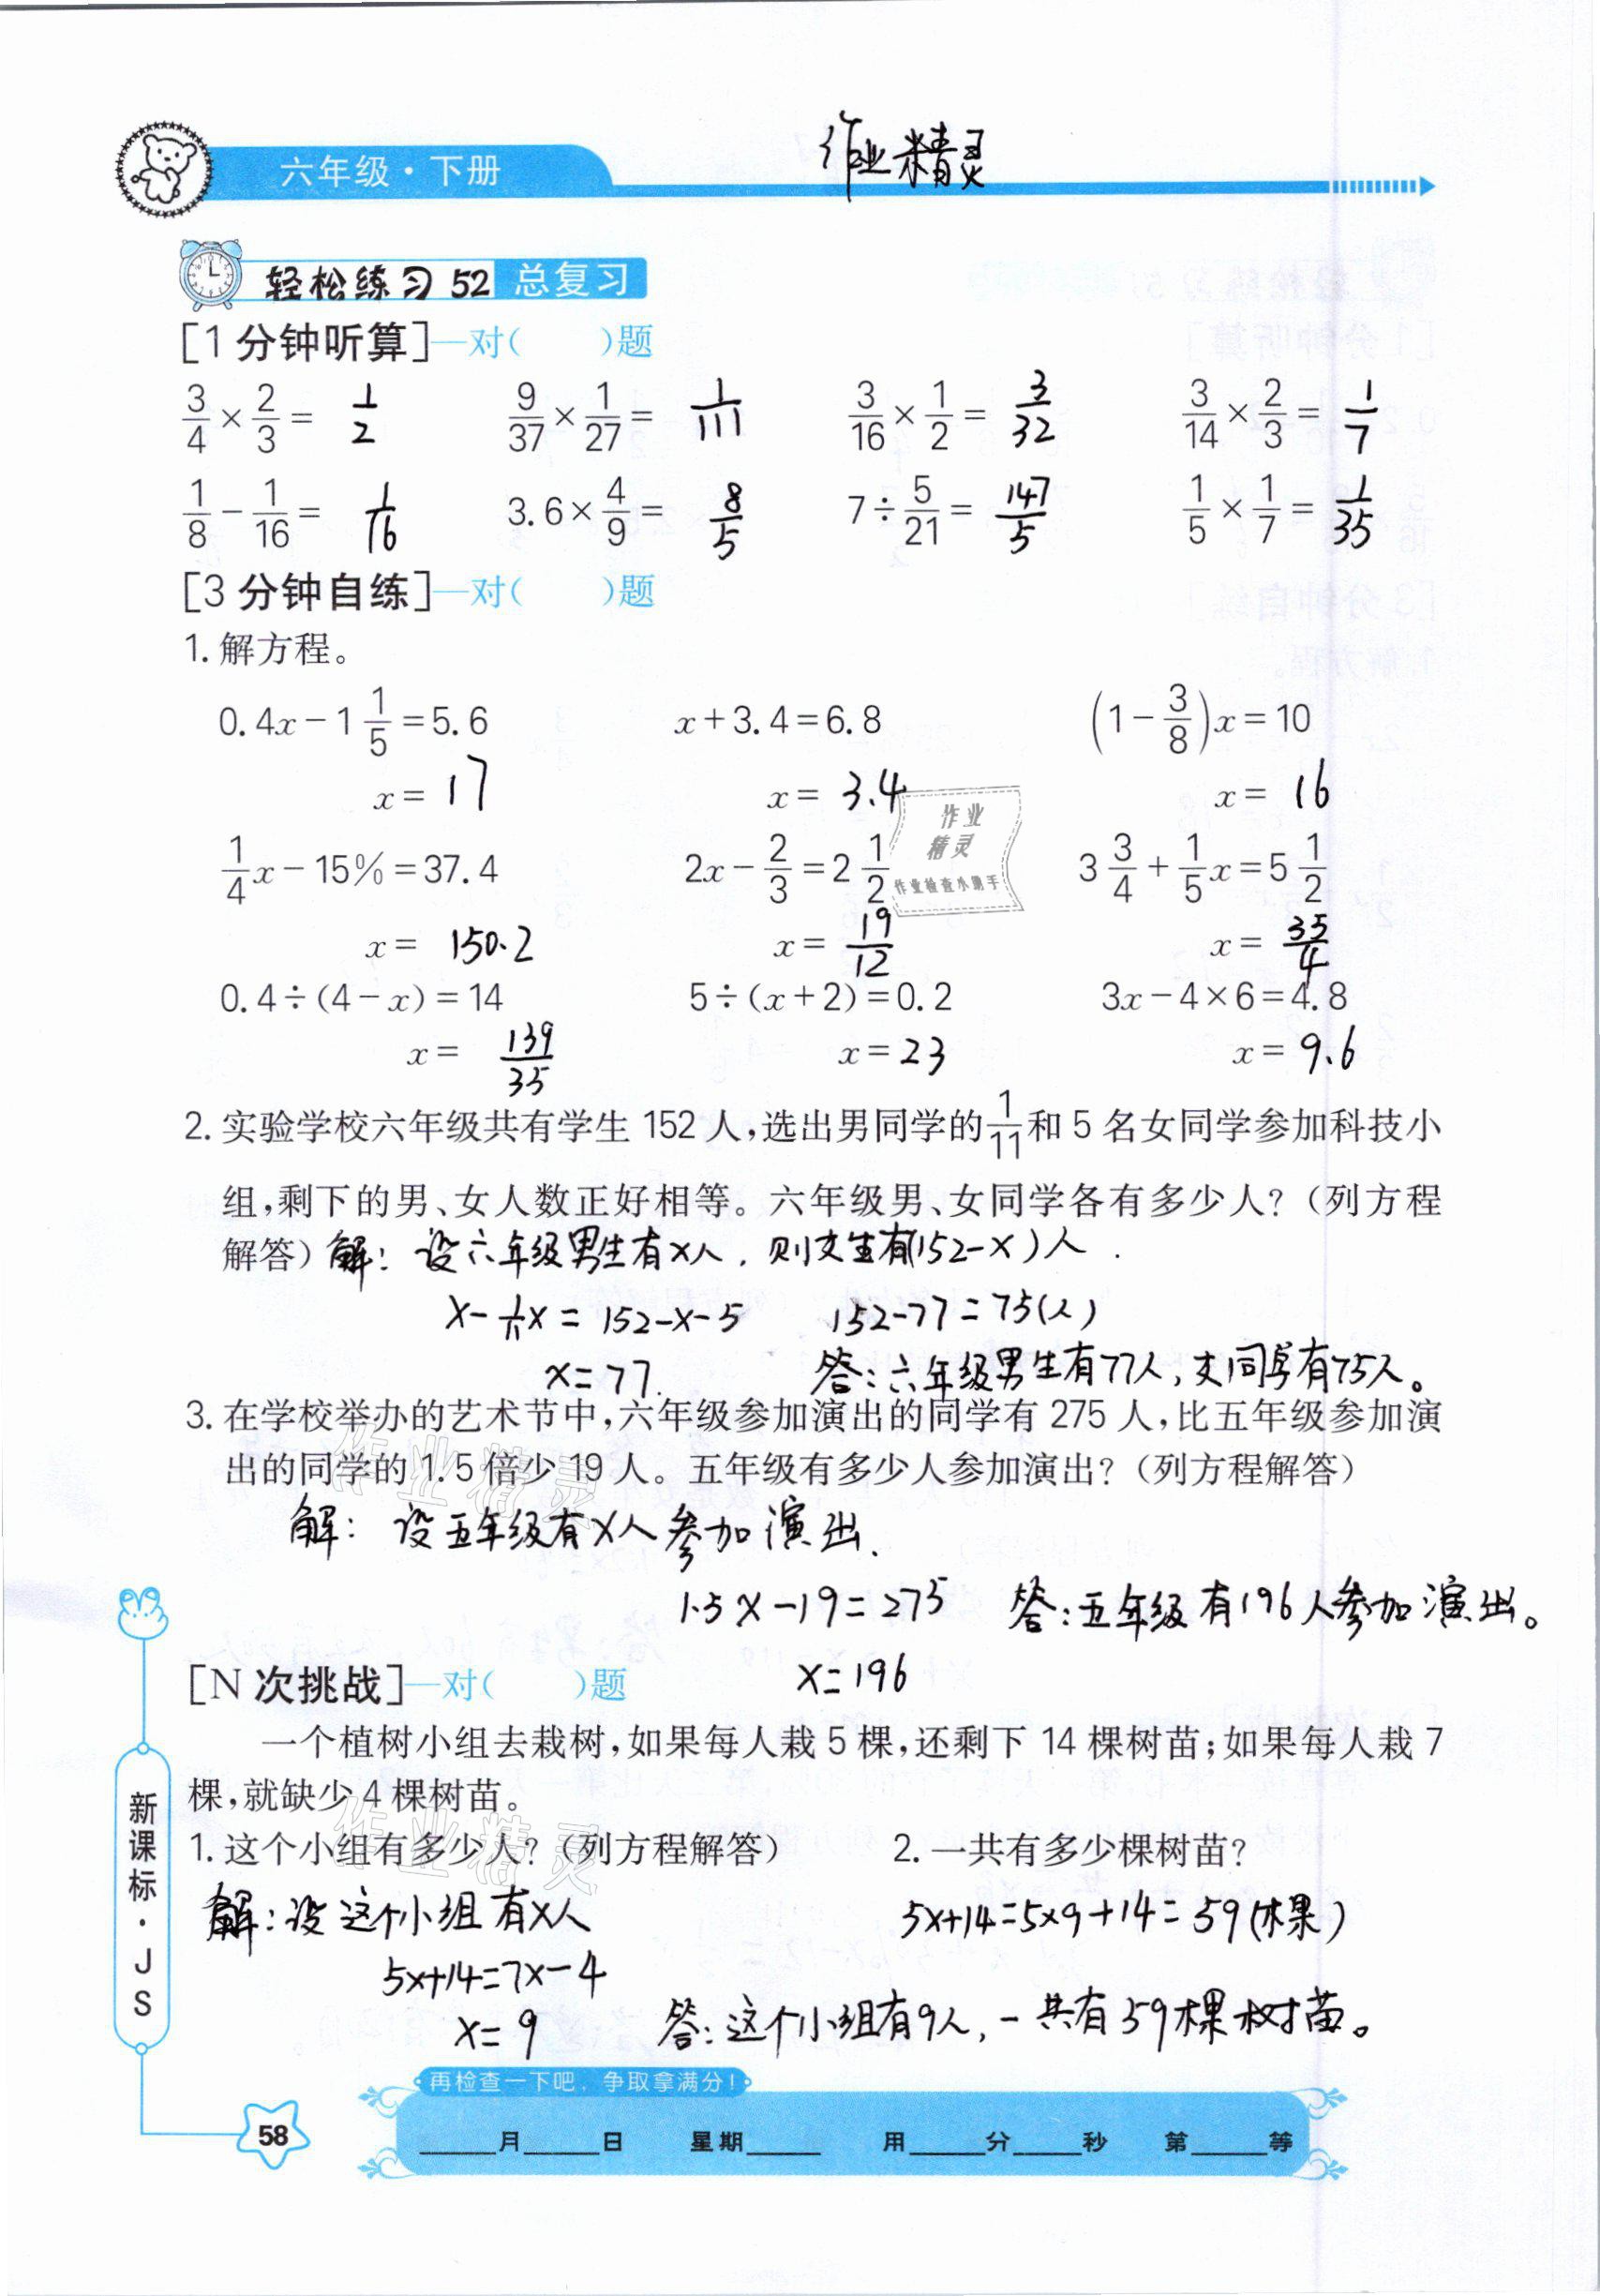 六年级·下册
作业精灵
轻松练习 52 总复习
[1 分钟听算]—对(    )题
3/4 × 2/3 = 1/2    9/37 × 1/27 = 1/111    3/16 × 1/2 = 3/32    3/14 × 2/3 = 1/7
1/8 − 1/16 = 1/16    3.6 × 4/9 = 8/5    7 ÷ 5/21 = 147/5    1/5 × 1/7 = 1/35
[3 分钟自练]—对(    )题
1. 解方程。
0.4x − 1 1/5 = 5.6    x + 3.4 = 6.8    (1 − 3/8)x = 10
x = 17    x = 3.4    x = 16
1/4 x − 15% = 37.4    2x − 2/3 = 2 1/2    3 3/4 + 1/5 x = 5 1/2
x = 150.2    x = 19/12    x = 35/4
0.4 ÷ (4 − x) = 14    5 ÷ (x + 2) = 0.2    3x − 4 × 6 = 4.8
x = 139/35    x = 23    x = 9.6
作业
精灵
作业检查小助手
2. 实验学校六年级共有学生 152 人,选出男同学的 1/11 和 5 名女同学参加科技小
组,剩下的男、女人数正好相等。六年级男、女同学各有多少人?(列方程
解答) 解: 设六年级男生有x人, 则女生有(152−x)人.
x − 1/11 x = 152−x−5    152−77=75(人)
x=77.    答:六年级男生有77人,女同学有75人。
3. 在学校举办的艺术节中,六年级参加演出的同学有 275 人,比五年级参加演
出的同学的 1.5 倍少 19 人。五年级有多少人参加演出?(列方程解答)
解: 设五年级有x人参加演出.
1.5x−19=275    答:五年级有196人参加演出。
x=196
[N 次挑战]—对(    )题
一个植树小组去栽树,如果每人栽 5 棵,还剩下 14 棵树苗;如果每人栽 7
棵,就缺少 4 棵树苗。
1. 这个小组有多少人?(列方程解答)    2. 一共有多少棵树苗?
解:设这个小组有x人    5x+14=5×9+14=59(棵)
5x+14=7x−4
x=9    答:这个小组有9人,一共有59棵树苗。
作业精灵
作业精灵
新课标·JS
58
再检查一下吧,争取拿满分!
____月____日    星期____    用____分____秒    第____等